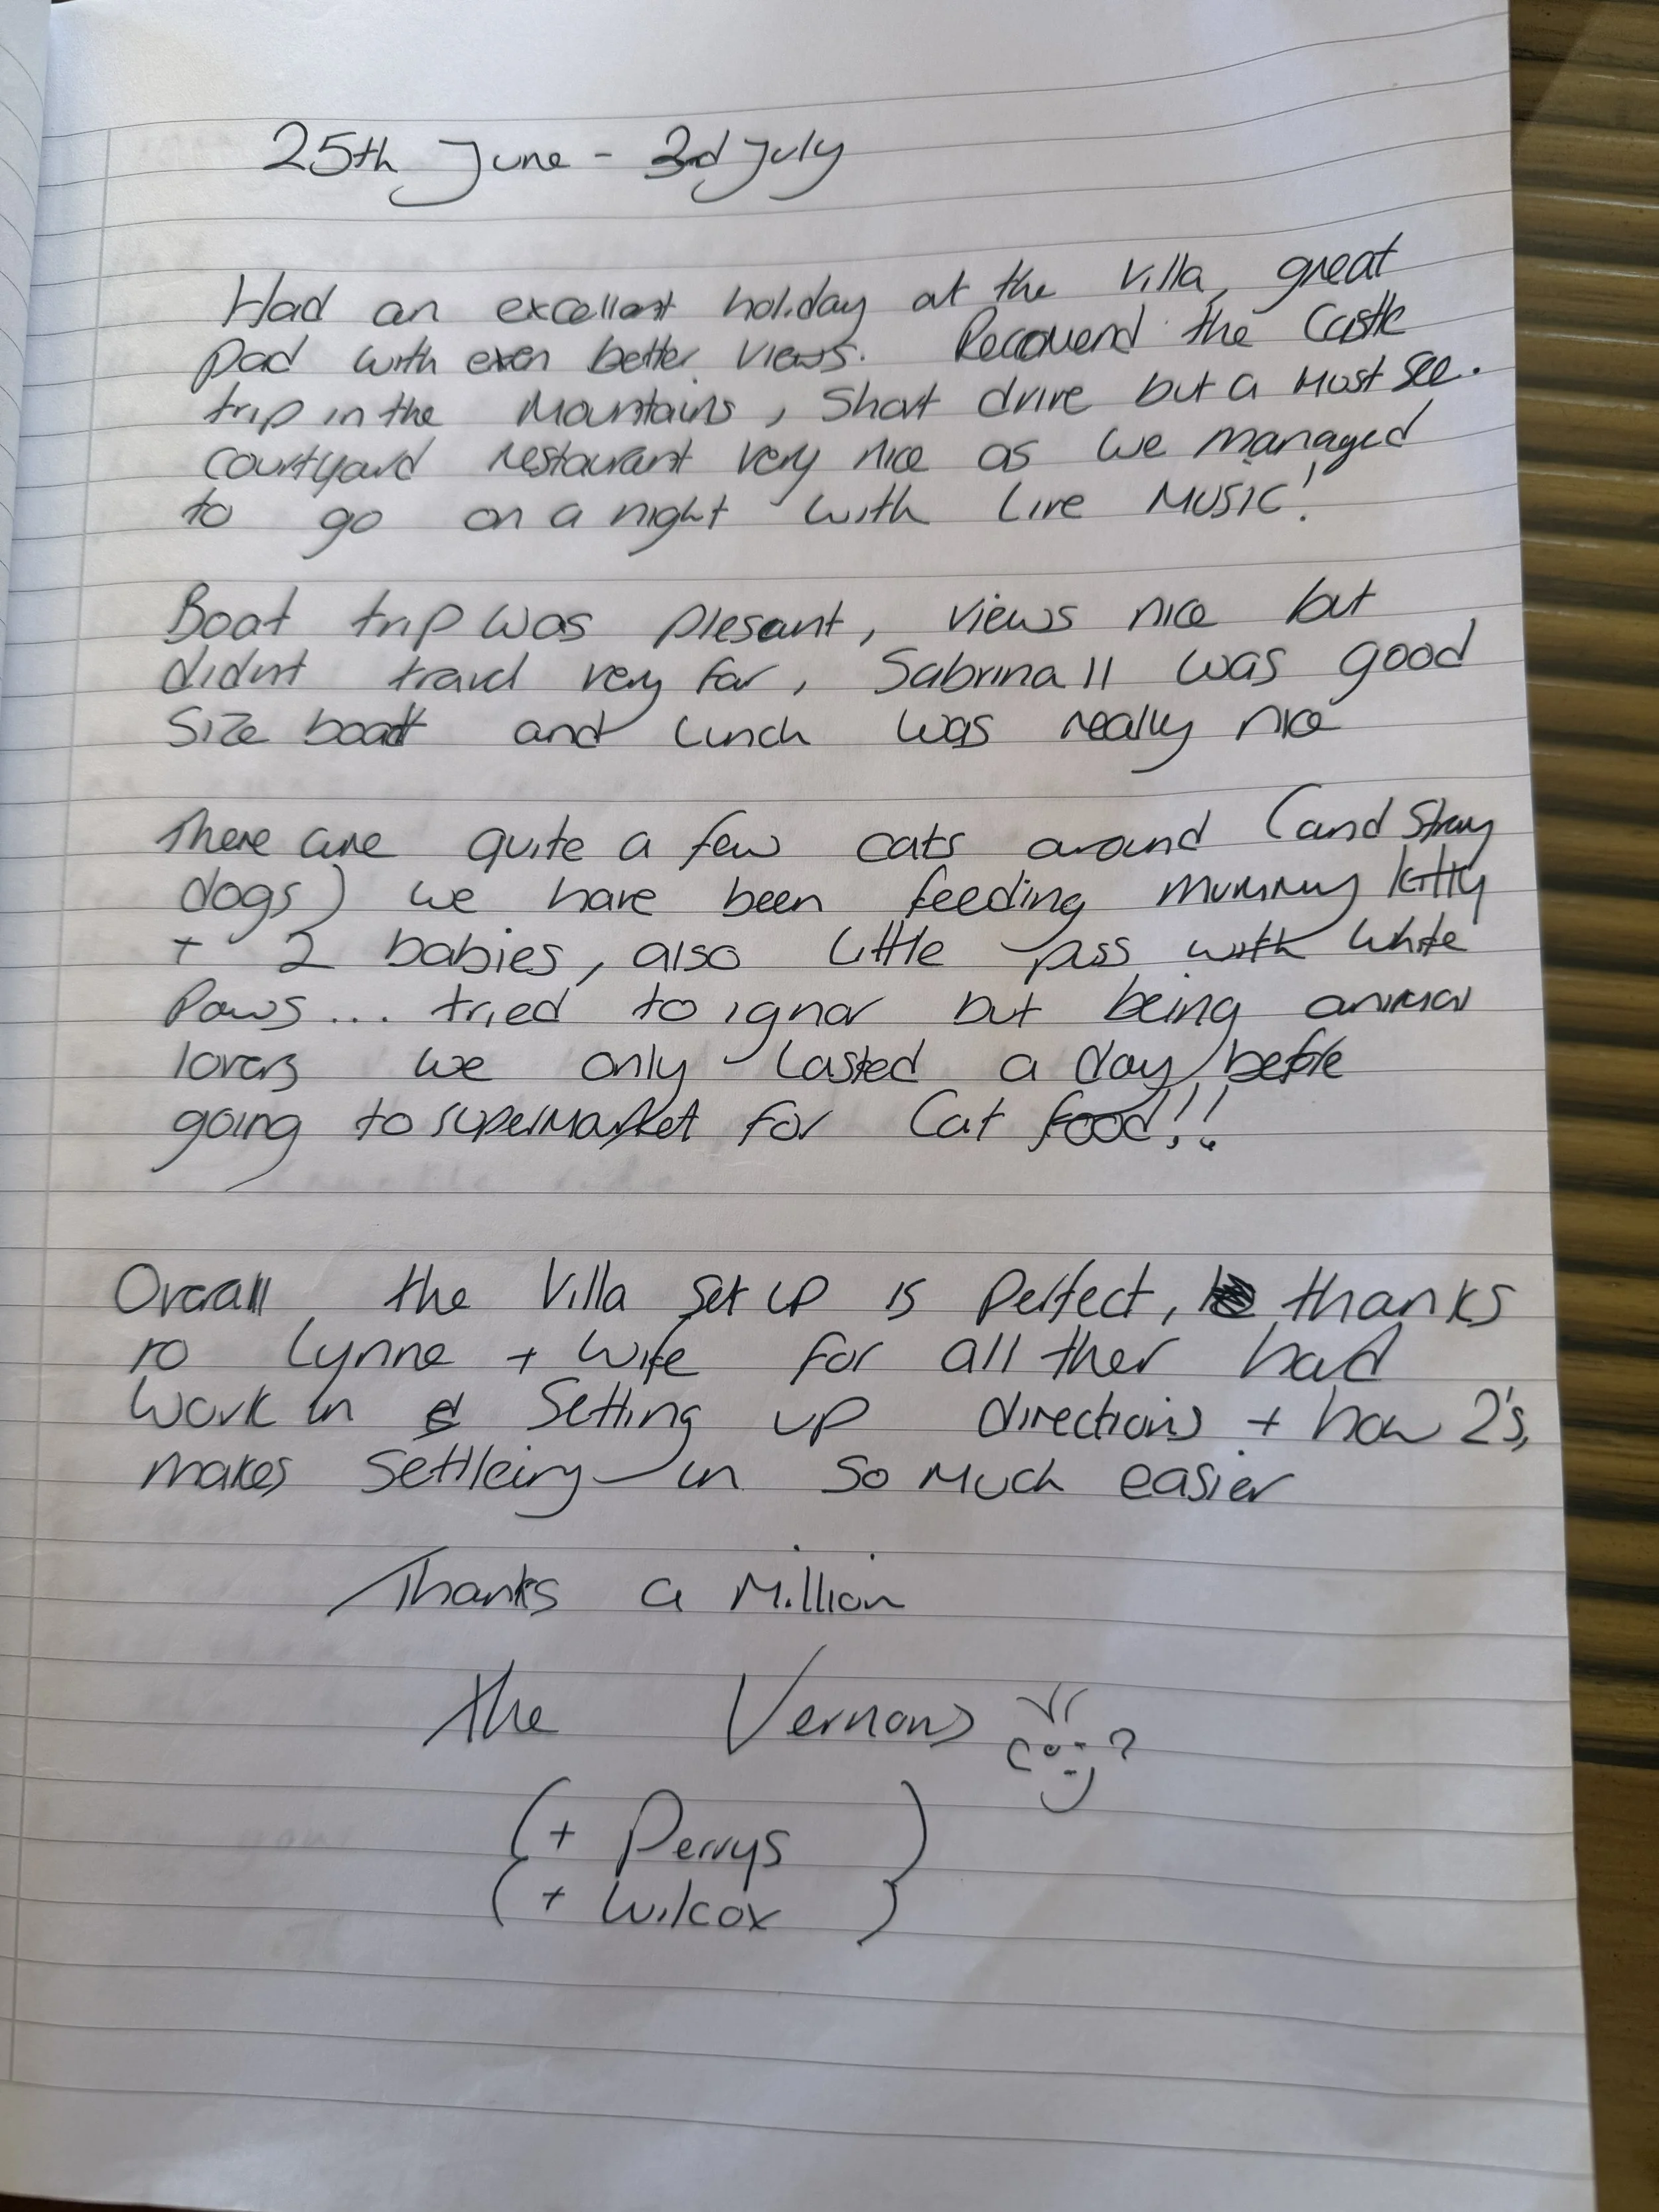 25th June - 3rd July
Had an excellent holiday at the Villa, great
pad with even better views. Recomend the Castle
trip in the Mountains, Short drive but a Must see.
Courtyard restaurant very nice as we managed
to go on a night with Live Music!
Boat trip was plesant, views nice but
didnt travel very far, Sabrina II was good
Size boat and lunch was really nice
There are quite a few cats around (and stray
dogs) we have been feeding mummy kitty
+ 2 babies, also little puss with white
Paws... tried to ignor but being animal
lovers we only lasted a day before
going to supermarket for Cat food!!
Overall the Villa set up is Perfect, thanks
to Lynne + Wife for all ther hard
Work in Setting up directions + how 2's,
makes Settleing in so much easier
Thanks a Million
The Vernons
(+ Perrys )
(+ Wilcox )